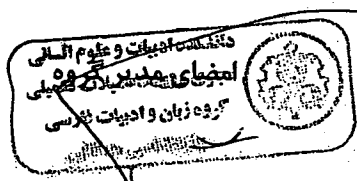 دانشکده ادبیات و علوم انسانی
امضای مدیر گروه
گروه زبان و ادبیات فارسی